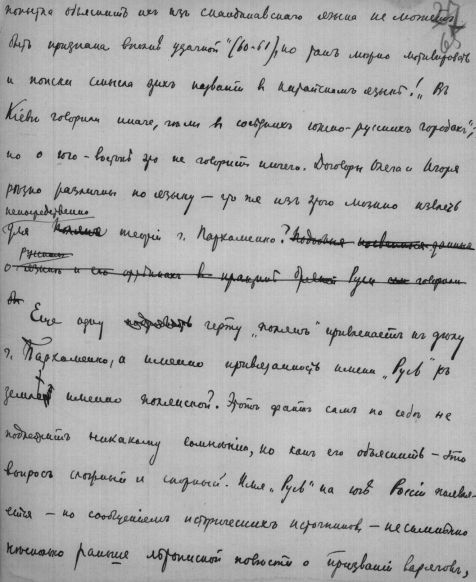 попытка объяснить ихъ изъ скандинавскаго языка не можетъ
быть признана вполнѣ удачной" (60-61), но развѣ можно мотивировать
и поиски смысла этихъ названій въ китайскомъ языкѣ! „Въ
Кіевѣ говорили иначе, чѣмъ въ сосѣднихъ южно-русскихъ городахъ",
но о юго-востокѣ это не говоритъ ничего. Договоры Олега и Игоря
розно различны по языку — что же изъ этого можно извлечь
непосредственно
для теоріи г. Пархоменко?
о языкѣ и его въ Руси говорили
Еще одну черту „полянъ" привлекаетъ къ дѣлу
г. Пархоменко, а именно привязанность имени „Русь" къ
землѣ именно полянской. Этотъ фактъ самъ по себѣ не
подлежитъ никакому сомнѣнію, но какъ его объяснить — это
вопросъ сложный и спорный. Имя „Русь" на югѣ Россіи появля-
ется — по сообщеніямъ историческихъ источниковъ — несомнѣнно
нѣсколько раньше лѣтописной повѣсти о призваніи варяговъ,